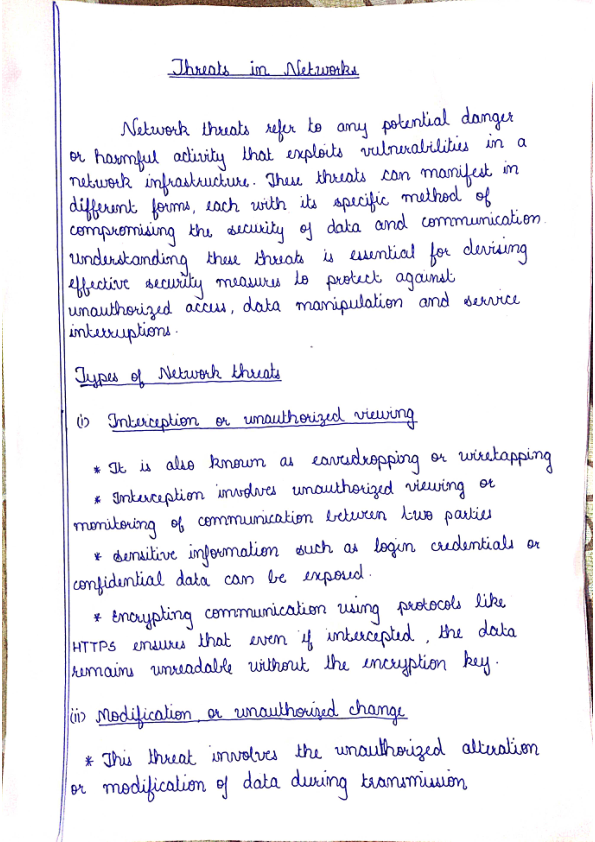 Threats in Networks
Network threats refer to any potential danger
or harmful activity that exploits vulnerabilities in a
network infrastructure. These threats can manifest in
different forms, each with its specific method of
compromising the security of data and communication.
understanding these threats is essential for devising
effective security measures to protect against
unauthorized access, data manipulation and service
interruptions.
Types of Network threats
(i) Interception or unauthorized viewing
* It is also known as eavesdropping or wiretapping
* Interception involves unauthorized viewing or
monitoring of communication between two parties
* sensitive information such as login credentials or
confidential data can be exposed.
* Encrypting communication using protocols like
HTTPS ensures that even if intercepted, the data
remains unreadable without the encryption key.
(ii) Modification or unauthorized change
* This threat involves the unauthorized alteration
or modification of data during transmission